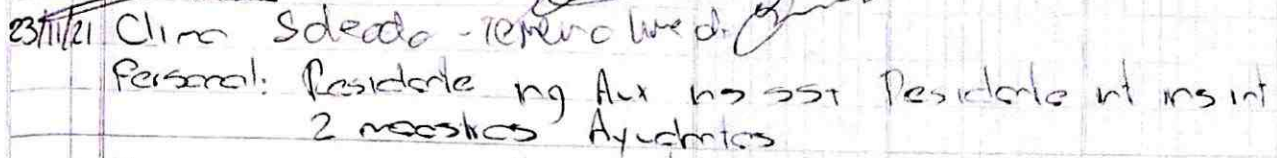 23/11/21 Clima Soleado - Terreno humedo
Personal: Residente ing Aux ing SST Residente int ing int
2 maestros Ayudantes